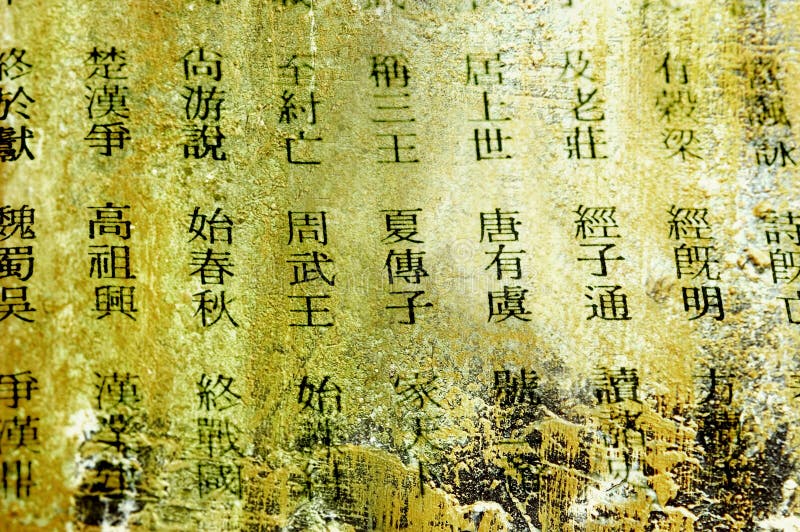 諷詠詩既亡
有穀梁經既明方
及老莊經子通讀諸史
居上世唐有虞號二
稱三王夏傳子家天下
至紂亡周武王始誅
尚游說始春秋終戰國
楚漢爭高祖興漢業
終於獻魏蜀吳爭漢